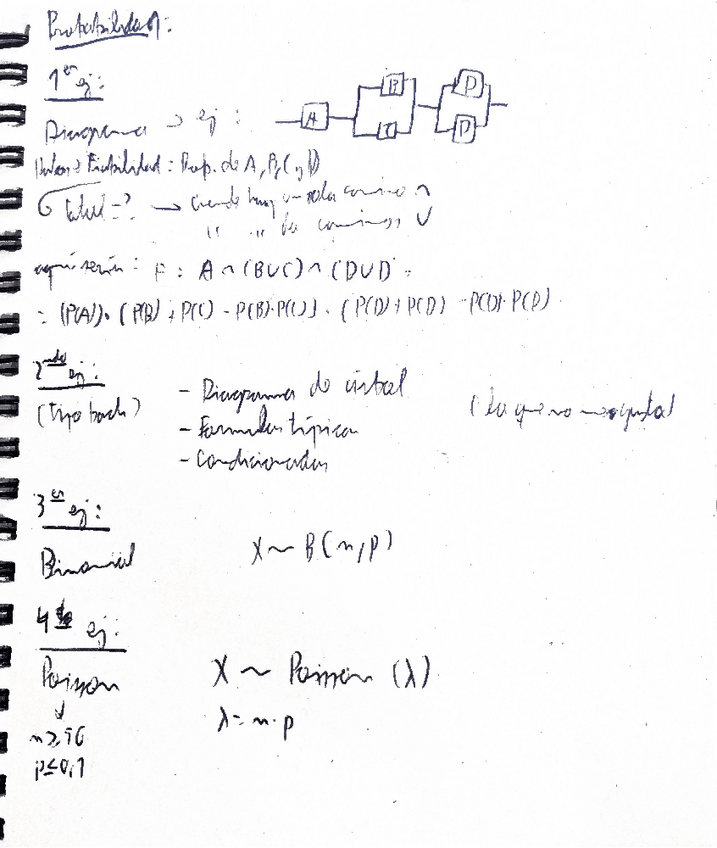 Probabilidad:
1er ej:
Diagrama → ej:
A
B
C
D
D
Probabilidad: Prop. de A, B, C y D
→ Cuando hay un solo camino ∩
" " dos caminos ∪
aquí sería: F: A ∩ (B∪C) ∩ (D∪D) =
= (P(A)) · (P(B) + P(C) - P(B)·P(C)) · (P(D) + P(D) - P(D)·P(D))
2ndo ej:
(tipo bach)
- Diagrama de árbol
- Formulas típicas
- Condicionadas
(la que no me gusta)
3er ej:
Binomial
X ~ B(n,p)
4to ej:
Poisson
X ~ Poisson (λ)
λ = n·p
p≤0,1